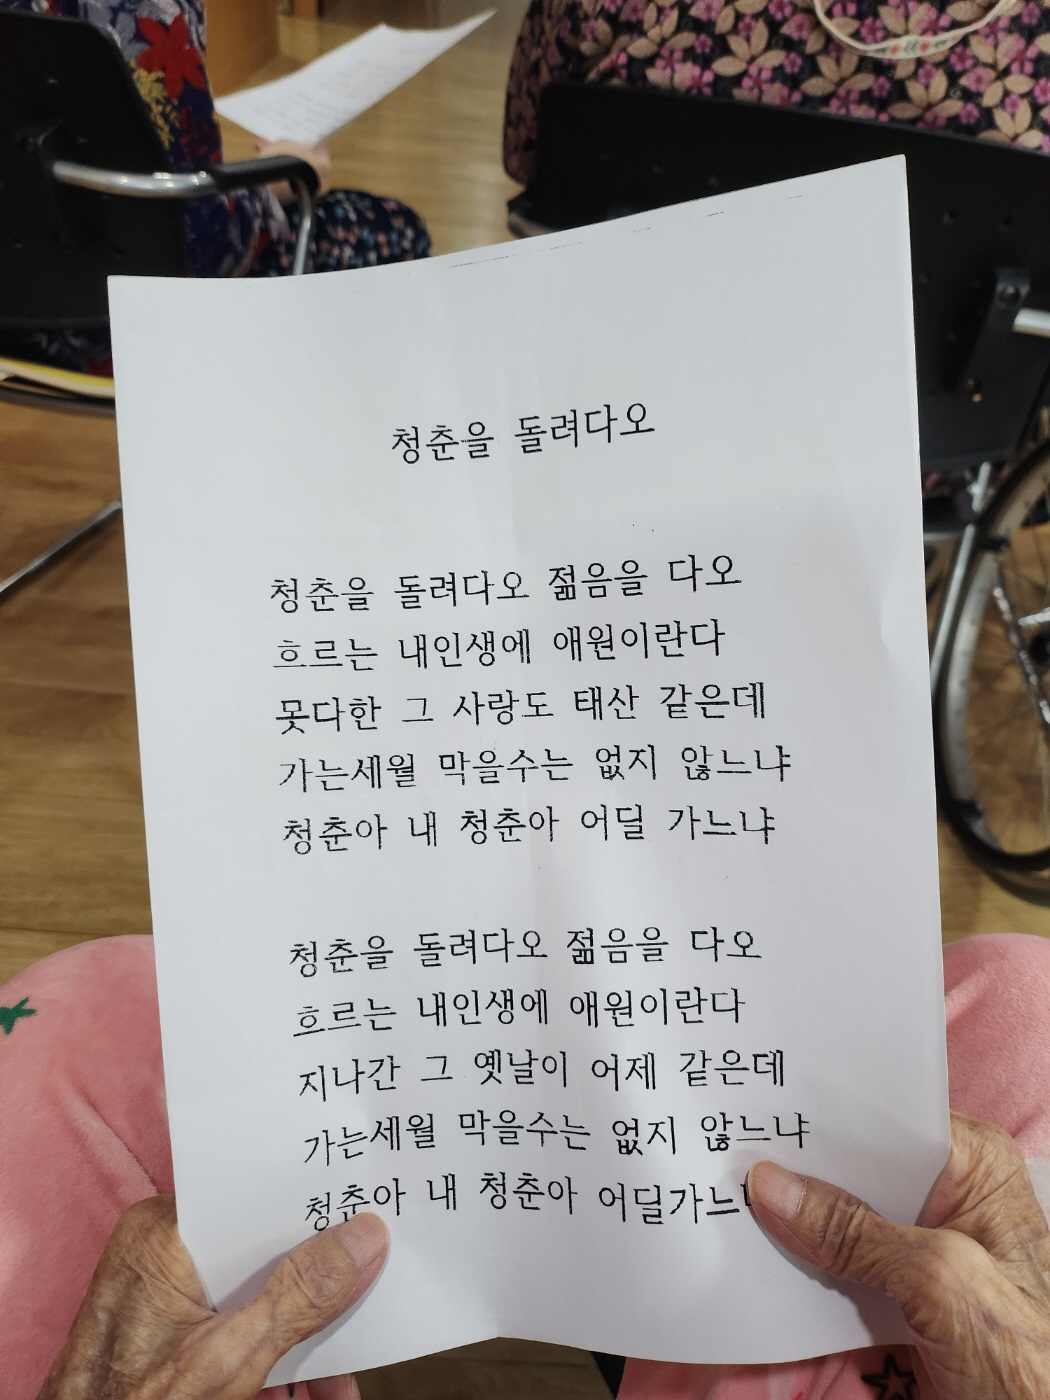 청춘을 돌려다오
청춘을 돌려다오 젊음을 다오
흐르는 내인생에 애원이란다
못다한 그 사랑도 태산 같은데
가는세월 막을수는 없지 않느냐
청춘아 내 청춘아 어딜 가느냐
청춘을 돌려다오 젊음을 다오
흐르는 내인생에 애원이란다
지나간 그 옛날이 어제 같은데
가는세월 막을수는 없지 않느냐
청춘아 내 청춘아